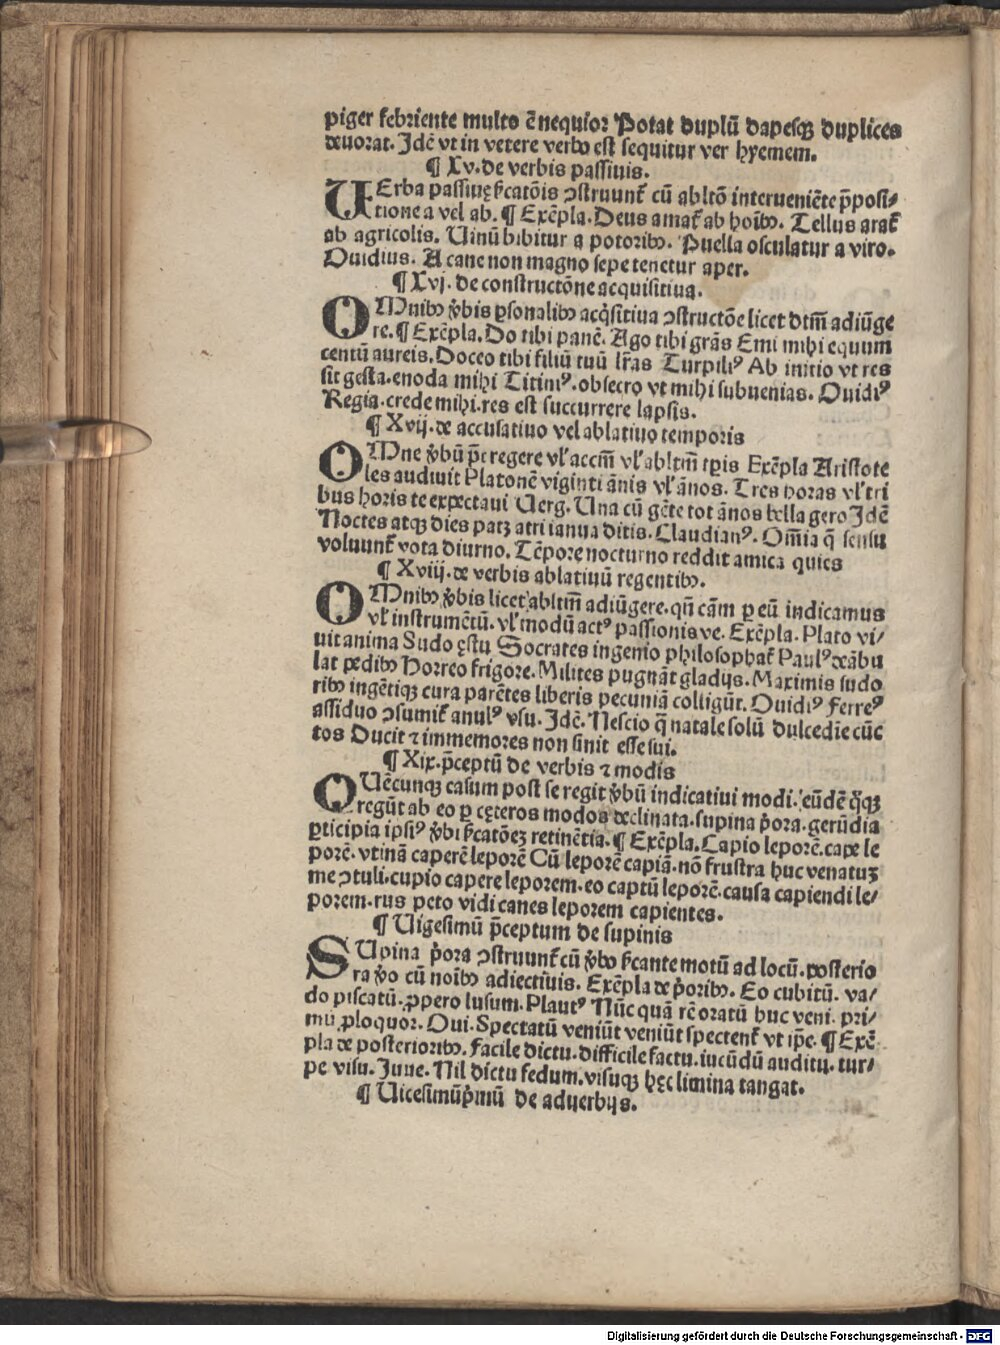 piger febriente multo ē nequior Potat duplū dapesqꝫ duplices
deuorat. Jdē vt in vetere verbo est sequitur ver hyemem.
¶ Xv. de verbis passiuis.
UErba passiuę ſ̄catōis ↄstruunt᷑ cū abltō interueniēte p̄posi⸗
tione a vel ab. ¶ Exēpla. Deus amat᷑ ab hoībꝰ. Tellus arat᷑
ab agricolis. Uinū bibitur a potoribꝰ. Puella osculatur a viro.
Ouidius. A cane non magno sepe tenetur aper.
¶ Xvj. de constructōne acquisitiua.
OMnibꝰ v̓bis ꝑsonalibꝰ acq̄sitiua ↄstructōe licet dtīm adiūge
re. ¶ Exēpla. Do tibi panē. Ago tibi grās Emi mihi equum
centū aureis. Doceo tibi filiū tuū lr̄as Turpiliꝰ Ab initio vt res
sit gesta. enoda mihi Titiniꝰ. obsecro vt mihi subuenias. Ouidiꝰ
Regia. crede mihi. res est succurrere lapsis.
¶ Xvij. de accusatiuo vel ablatiuo temporis
OMne v̓bū p̄t regere vl̓ accīm vl̓ abltīm tp̄is Exēpla Aristote
les audiuit Platonē viginti ānis vl̓ ānos. Tres horas vl̓ tri
bus horis te expectaui Uerg. Una cū gēte tot ānos bella gero Jdē
Noctes atqꝫ dies patꝫ atri ianua ditis. Claudianꝰ. Om̄ia q̄ sensu
voluunt᷑ vota diurno. Tēpore nocturno reddit amica quies
¶ Xviij. de verbis ablatiuū regentibꝰ.
OMnibꝰ v̓bis licet abltīm adiūgere. qn̄ cām ꝑ eū indicamus
vl̓ instrumētū. vl̓ modū actꝰ passionisve. Exēpla. Plato vi⸗
uit anima Sudo ęstu Socrates ingenio philosophat᷑ Paulꝰ deābu
lat pedibꝰ Horreo frigore. Milites pugnāt gladijs. Maximis sudo
ribꝰ ingētiqꝫ cura parētes liberis pecuniā colligūt. Ouidiꝰ Ferreꝰ
assiduo ↄsumit᷑ anulꝰ vsu. Jdē. Nescio q̄ natale solū dulcedīe cūc
tos Ducit ⁊ immemores non sinit esse sui.
¶ Xix. p̄ceptū de verbis ⁊ modis
QUēcunqꝫ casum post se regit v̓bū indicatiui modi. eūdē q̄qꝫ
regūt ab eo ꝑ cęteros modos declinata. supina p̓ora. gerūdia
ꝑticipia ipsiꝰ v̓bi ſ̄catōeꝫ retinētia. ¶ Exēpla. Capio leporē. cape le
porē. vtinā caperē leporē Cū leporē capiā. nō frustra huc venatuꝫ
me ↄtuli. cupio capere leporem. eo captū leporē. causa capiendi le⸗
porem. rus peto vidi canes leporem capientes.
¶ Uigesimū p̄ceptum de supinis
SUpina p̓ora ↄstruunt᷑ cū v̓bo ſ̄cante motū ad locū. posterio
ra v̓o cū noībꝰ adiectiuis. Exēpla de p̓oribꝰ. Eo cubitū. va⸗
do piscatū. ꝓpero lusum. Plautꝰ Nūc quā rē oratū huc veni. pri⸗
mū ꝓloquor. Oui. Spectatū veniūt veniūt spectent᷑ vt ip̄e. ¶ Exē
pla de posterioribꝰ. Facile dictu. difficile factu. iucūdū auditu. tur⸗
pe visu. Juue. Nil dictu fedum. visuqꝫ hęc limina tangat.
¶ Uicesimūp̓mū de aduerbijs.
Digitalisierung gefördert durch die Deutsche Forschungsgemeinschaft - DFG